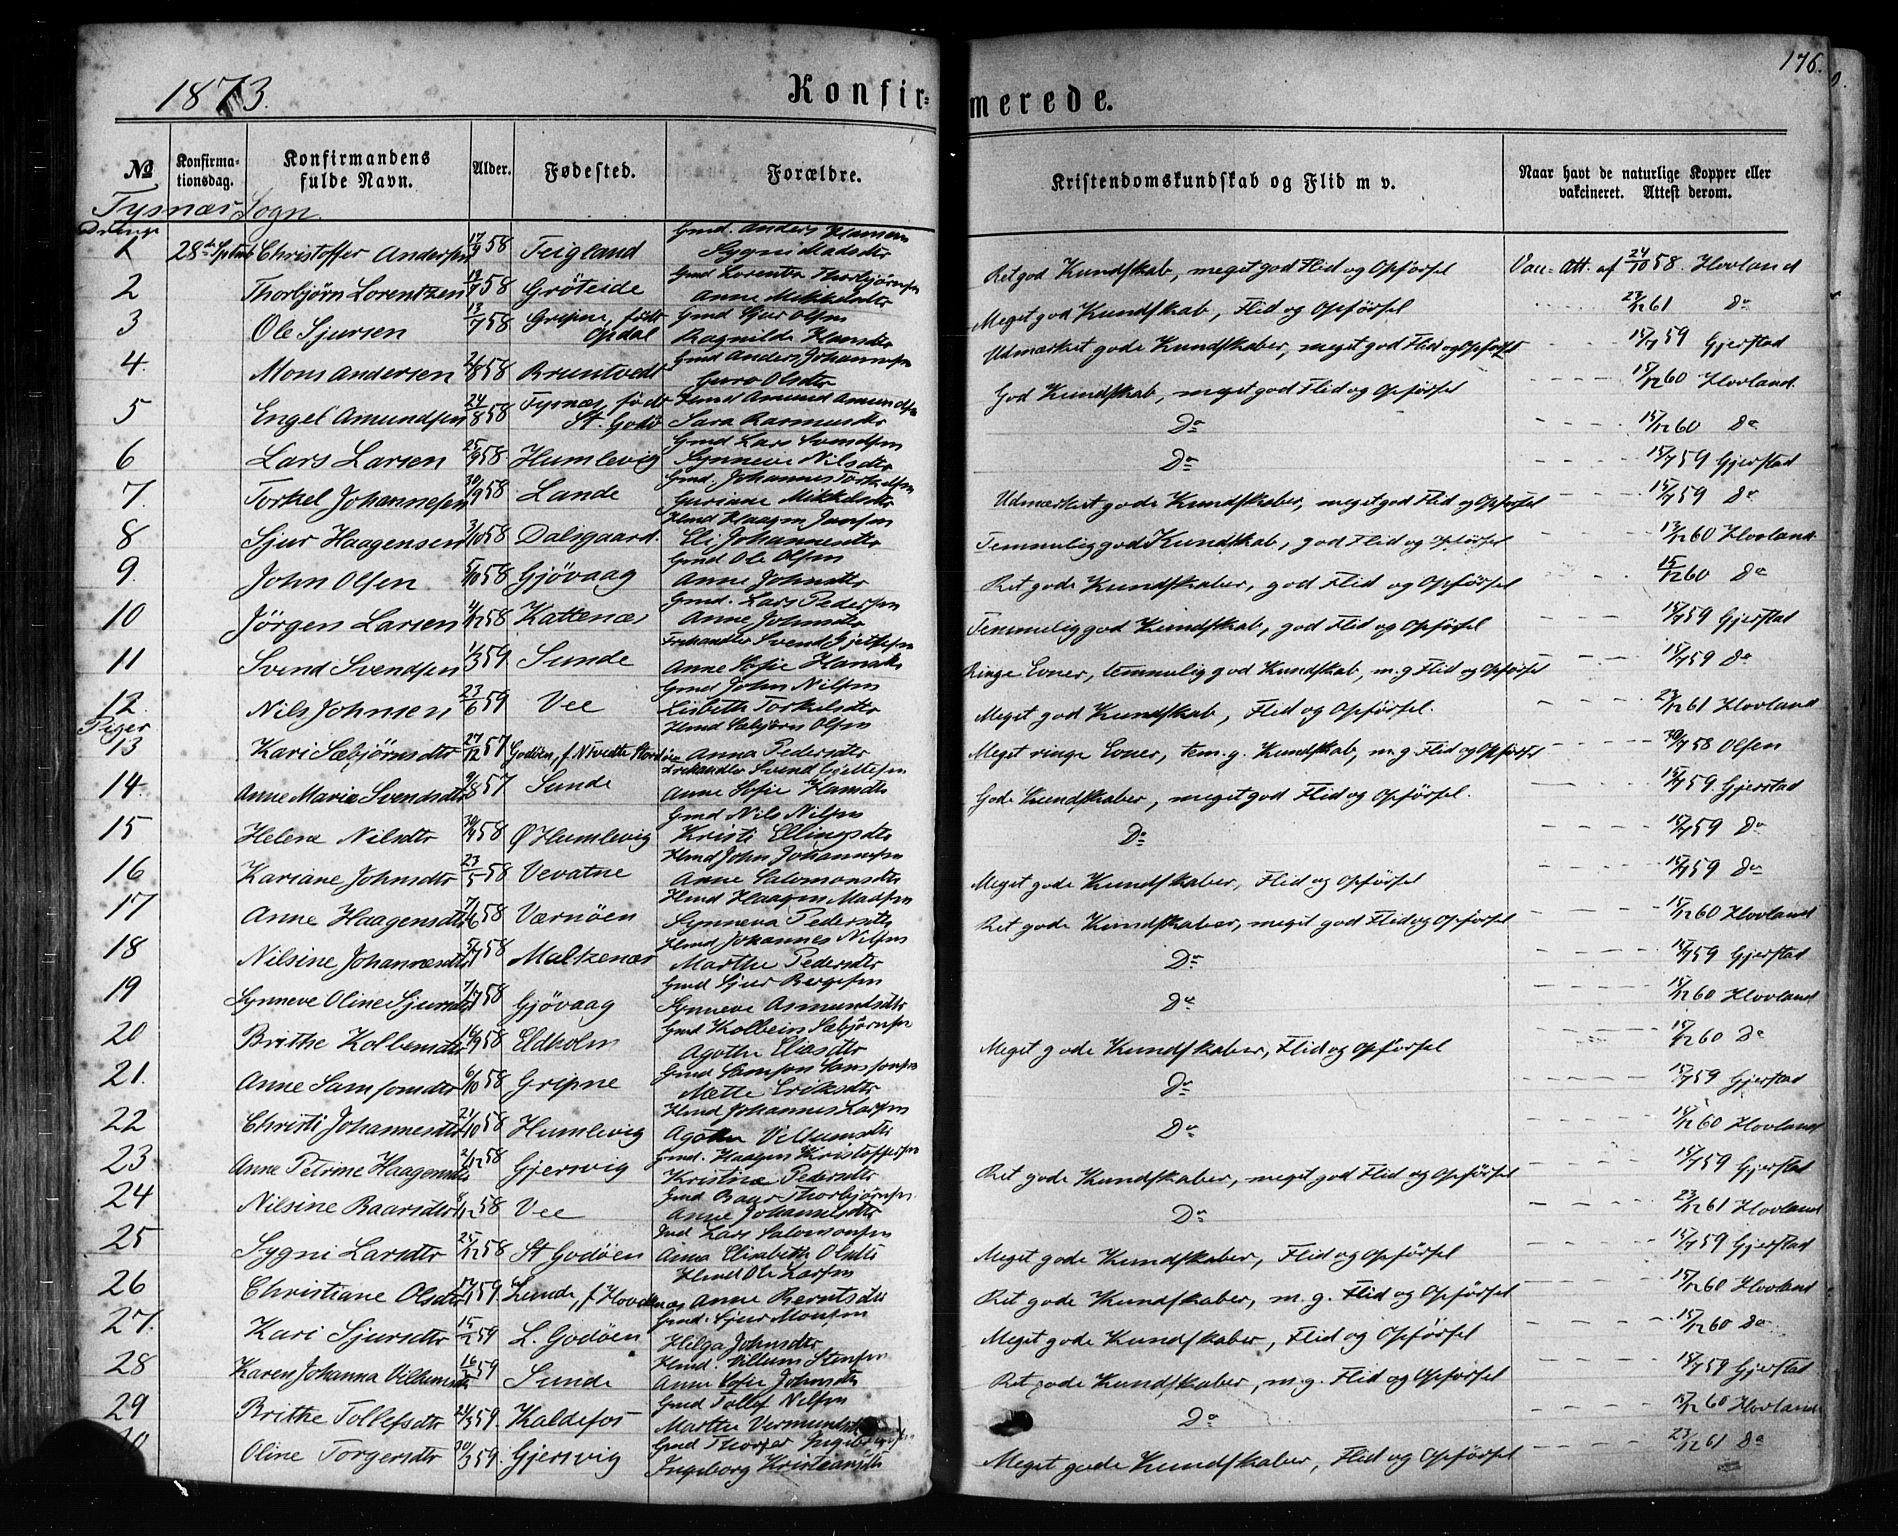 176.
1873.
Konfir=
merede.
№
Konfirma-
tionsdag.
Konfirmandens
fulde Navn.
Alder.
Fødested.
Forældre.
Kristendomskundskab og Flid m v.
Naar havt de naturlige Kopper eller
vakcineret. Attest derom.
Tysnæs Sogn
Drenge
1 28de Septemb Christoffer Andersen 58 Teigland Gmd. Anders Hansen Sygni Madsdtr Ret god Kundskab, meget god Flid og Opförsel Vac. Att. af 24/10 58. Hovland
2 Thorbjörn Lorentzen 58 Gröteide Gmd Lorentz Thorbjörnsen Anne Mikkelsdtr Meget god Kundskab, Flid og Opförsel 23/12 61 Do
3 Ole Sjursen 13/7 58 Gripne, födt Opdal Gmd Sjur Olsen Ragnilde Hansdtr Udmærket gode Kundskaber, meget god Flid og Opförsel 15/7 59 Gjerstad
4. Mons Andersen 58 Bruntvedt Gmd Anders Johannesen Guro Olsdtr God Kundskab, meget god Flid og Opförsel 15/12 60 Hovland.
5 Engel Amundsen 24/8 58 Tysnæs, födt St. Godö Hmd Amund Amundsen Sara Rasmusdtr Do 15/12 60 Do
6 Lars Larsen 25/9 58 Humlevig Gmd Lars Svendsen Synneve Nilsdtr Do 15/7 59 Gjerstad
7. Torkel Johannesen 30/9 58 Lande Gmd. Johannes Torkelsen Guriane Mikkelsdtr Udmærket gode Kundskaber, meget god Flid og Opförsel 15/7 59 Do
8 Sjur Haagensen 3/10 58 Dalsgaard. Hmd Haagen Jansen Eli Johannesdtr Temmelig god Kundskab, god Flid og Opförsel 60 Hovland
9. John Olsen 5/10 58 Gjövaag Gmd Ole Olsen Anne Johnsdtr Ret gode Kundskaber, god Flid og Opförsel 15/12 60 Do
10 Jörgen Larsen 58 Kattenæs Gmd. Lars Pedersen Anne Johnsdtr Temmelig god Kundskab, god Flid og Opförsel 15/7 59 Gjerstad
11 Svend Svendsen 59 Sunde Svend Gjettesen Anne Sofie Hansdtr Ringe Evner, temmelig god Kundskab, m. g Flid og Opförsel 15/7 59 Do
12. Nils Johnsen 23/6 59 Vee Gmd John Nilsen Lisbeth Torkelsdtr Meget god Kundskab, Flid og Opförsel. 23/12 61 Hovland
Piger
13 Kari Sæbjörnsdtr 27/12 57 Godöen, f. Hmd Sæbjörn Olsen Anna Pedersdtr Meget ringe Evner, tem. g. Kundskab, m. g Flid og Opförsel 58 Olsen
14. Anne Marie Svendsdtr 9/8 57 Sunde Svend Gjettesen Anne Sofie Hansdtr Gode Kundskaber, meget god Flid og Opförsel. 15/7 59. Gjerstad
15 Helene Nilsdtr 58 Ø Humlevig Gmd Nils Nilsen Kristi Ellingsdtr Do 15/7 59 Do
16 Kariane Johnsdtr 23/5 58 Vevatne Hmd John Johannesen Anne Salomonsdtr Meget gode Kundskaber, Flid og Opförsel 15/7 59 Do
17 Anne Haagensdtr 7/6 58 Værnöen Hmd Haagen Madsen Synneva Pedersdtr Ret gode Kundskaber, meget god Flid og Opförsel 15/12 60 Hovland
18 Nilsine Johannesdtr 58 Malkenæs Hmd Johannes Nilsen Marthe Pedersdtr Do 15/7 59 Gjerstad
19 Synneve Oline Sjursdtr 58 Gjövaag Gmd Sjur Bergesen Synneve Asmundsdtr Do 15/12 60 Hovland
20 Brithe Kolbensdtr 58 Eldholm Gmd Kolbein Sæbjörnsen Agothe Eliasdtr Meget gode Kundskaber, Flid og Opförsel 15/12 60 Do
21. Anne Samsonsdtr 6/10 58 Gripne Gmd Samson Samsonsen Mette Eriksdtr Do 15/7 59 Gjerstad
22 Christi Johannesdtr 21/10 58 Humlevig Hmd Johannes Larsen Agothe Villumsdtr Do 15/12 60 Hovland
23 Anne Petrine Haagensdtr 2/12 58 Gjersvig Gmd. Haagen Kristoffersen Kristine Pedersdtr Ret gode Kundskaber, meget god Flid og Opförsel 15/7 59 Gjerstad
24 Nilsine Baarsdtr 58 Vee Gmd Baar Thorbjörnsen Anne Johannesdtr Do 23/12 61 Hovland
25 Sygni Larsdtr 25/12 58 St Godöen Lars Salomonsen Anna Elisabeth Olsdtr Meget gode Kundskaber, Flid og Opförsel 15/7 59 Gjerstad
26 Christiane Olsdtr 59. Lunde, f. Hovdenæs Hmd Ole Larsen Anne Berntsdtr Ret gode Kundskaber, m. g. Flid og Opförsel 15/12 60 Hovland
27. Kari Sjursdtr 59 L. Godöen Gmd. Sjur Monsen Helga Johnsdtr Meget gode Kundskaber, Flid og Opförsel 15/12 60 Do
28 Karen Johanna Villumsdtr 59 Sunde Hmd. Villum Stensen Anne Sofie Johnsdtr Ret gode Kundskaber, m. g. Flid og Opförsel 15/7 59 Gjerstad
29 Brithe Tollefsdtr 59. Kaldefos Gmd Tollef Nilsen Marthe Do 15/12 60 Hovland
30 Oline Torgersdtr 59. Gjersvig Gmd Ingeborg Kristiansdtr Meget gode Kundskaber, Flid og Opförsel 23/12 61 Do